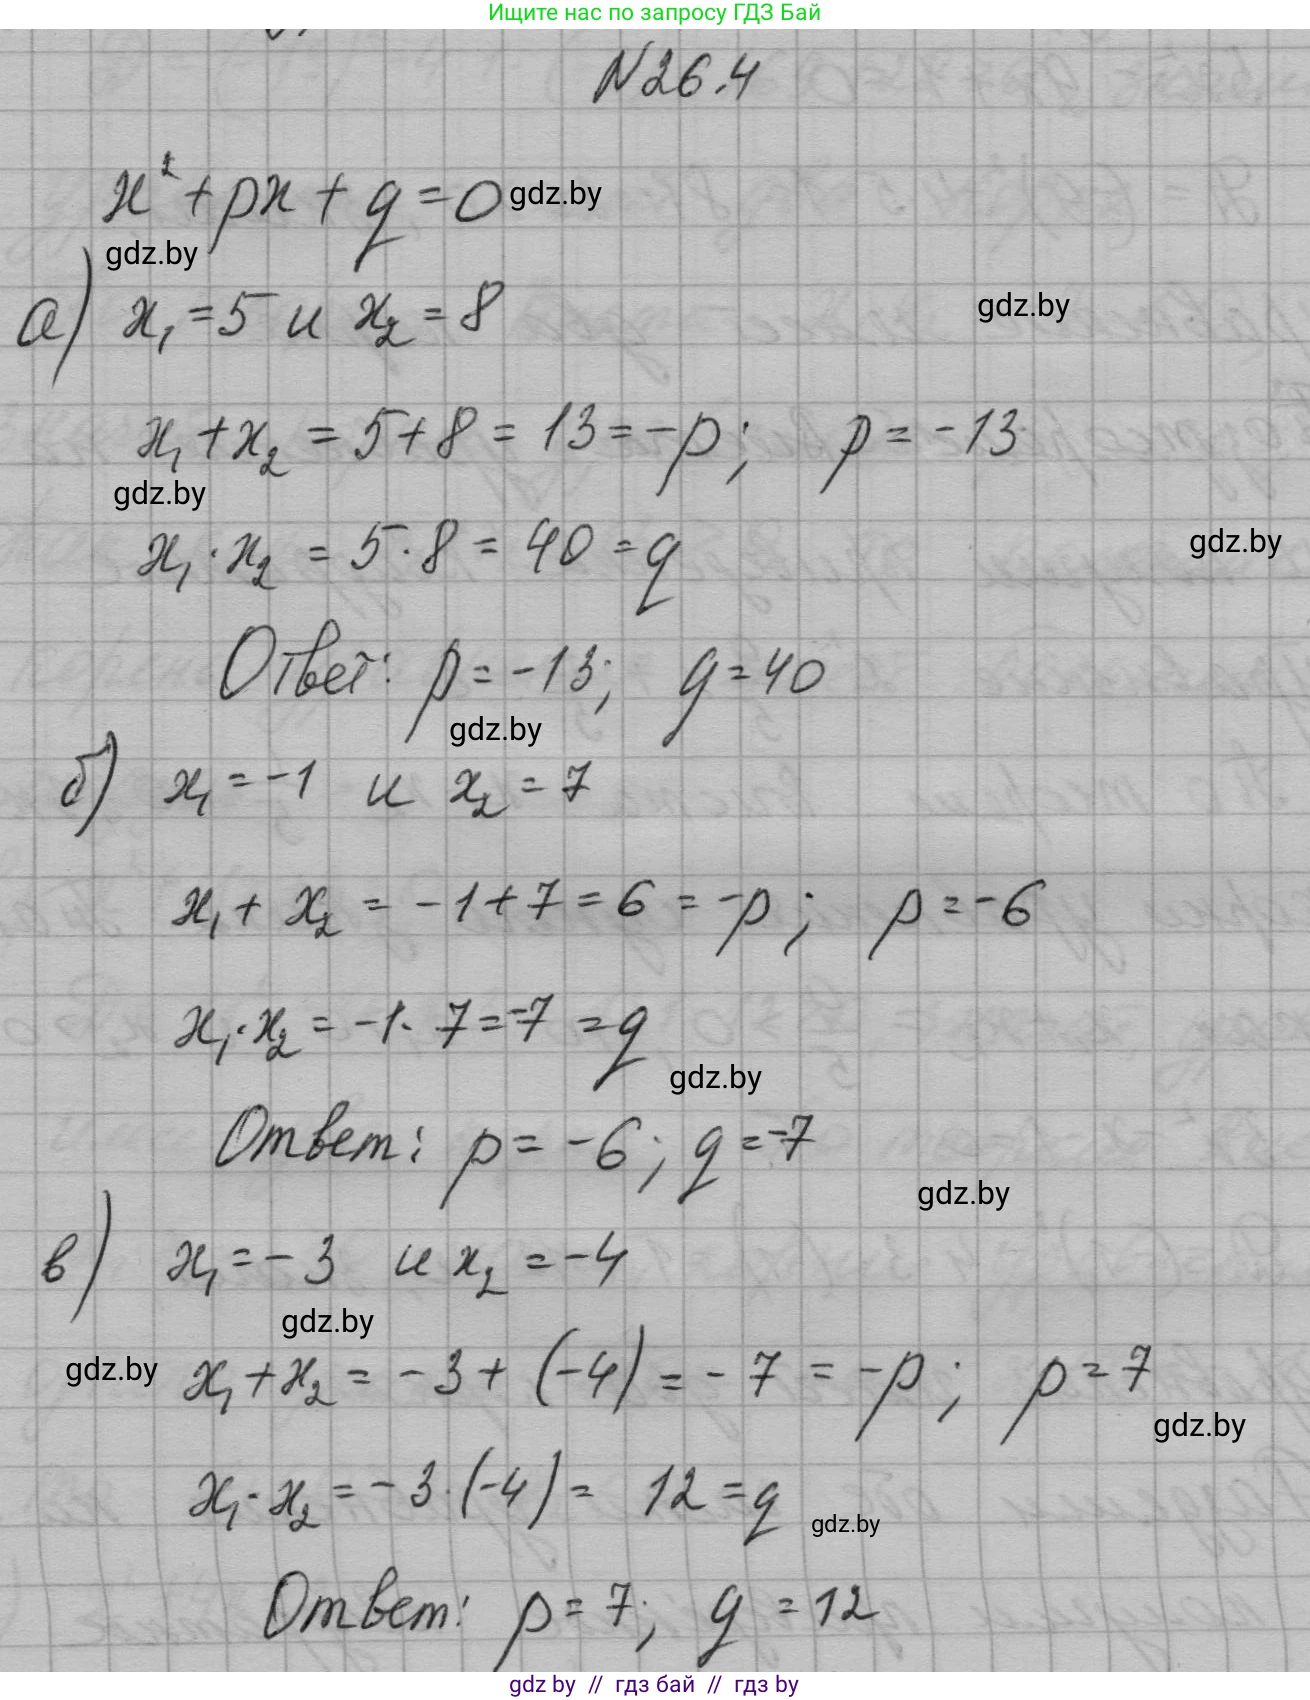 Ищите нас по запросу ГДЗ Бай
N26.4
x² + px + q = 0 gdz.by
gdz.by
а) x₁ = 5 и x₂ = 8
gdz.by
x₁ + x₂ = 5 + 8 = 13 = -p; p = -13
gdz.by
x₁ · x₂ = 5 · 8 = 40 = q
gdz.by
Ответ: p = -13; q = 40
gdz.by
б) x₁ = -1 и x₂ = 7
x₁ + x₂ = -1 + 7 = 6 = -p; p = -6
x₁ · x₂ = -1 · 7 = -7 = q
gdz.by
Ответ: p = -6; q = -7
gdz.by
в) x₁ = -3 и x₂ = -4
gdz.by
gdz.by x₁ + x₂ = -3 + (-4) = -7 = -p; p = 7
gdz.by
x₁ · x₂ = -3 · (-4) = 12 = q
gdz.by
Ответ: p = 7; q = 12
gdz by // гдз бай // гдз by